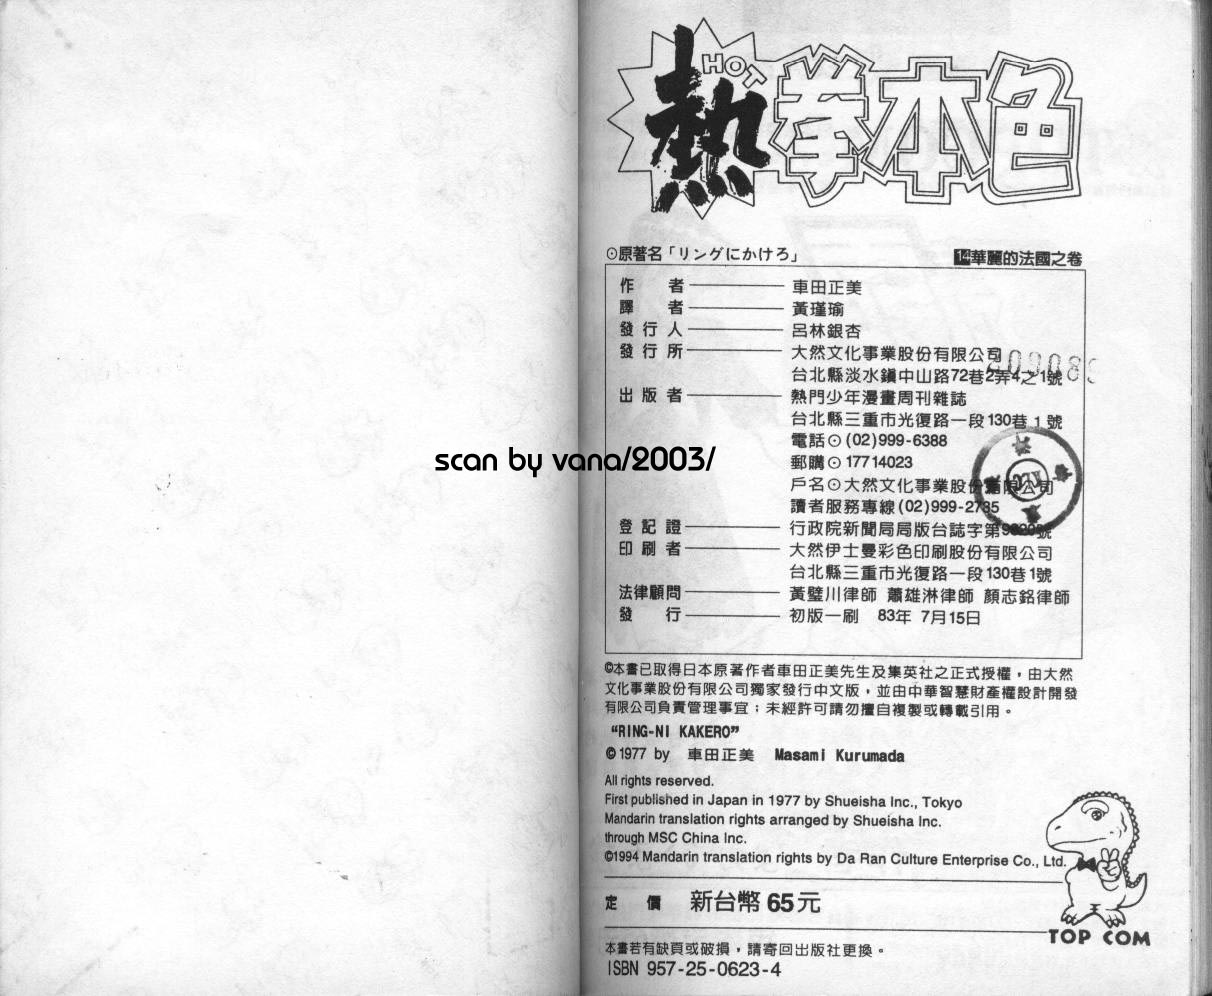 HOT
熱拳本色
⊙原著名「リングにかけろ」 14華麗的法國之卷
作 者 車田正美
譯 者 黃瑾瑜
發行人 呂林銀杏
發行所 大然文化事業股份有限公司
台北縣淡水鎮中山路72巷2弄4之1號
出版者 熱門少年漫畫周刊雜誌
台北縣三重市光復路一段130巷1號
電話⊙(02)999-6388
scan by vana/2003/
郵購⊙17714023
戶名⊙大然文化事業股份有限公司
讀者服務專線(02)999-2785
登記證 行政院新聞局局版台誌字第 號
印刷者 大然伊士曼彩色印刷股份有限公司
台北縣三重市光復路一段130巷1號
法律顧問 黃璧川律師 蕭雄淋律師 顏志銘律師
發 行 初版一刷 83年 7月15日
©本書已取得日本原著作者車田正美先生及集英社之正式授權,由大然
文化事業股份有限公司獨家發行中文版,並由中華智慧財產權設計開發
有限公司負責管理事宜;未經許可請勿擅自複製或轉載引用。
“RING-NI KAKERO”
©1977 by 車田正美 Masami Kurumada
All rights reserved.
First published in Japan in 1977 by Shueisha Inc., Tokyo
Mandarin translation rights arranged by Shueisha Inc.
through MSC China Inc.
©1994 Mandarin translation rights by Da Ran Culture Enterprise Co., Ltd.
定 價 新台幣65元
TOP COM
本書若有缺頁或破損,請寄回出版社更換。
ISBN 957-25-0623-4